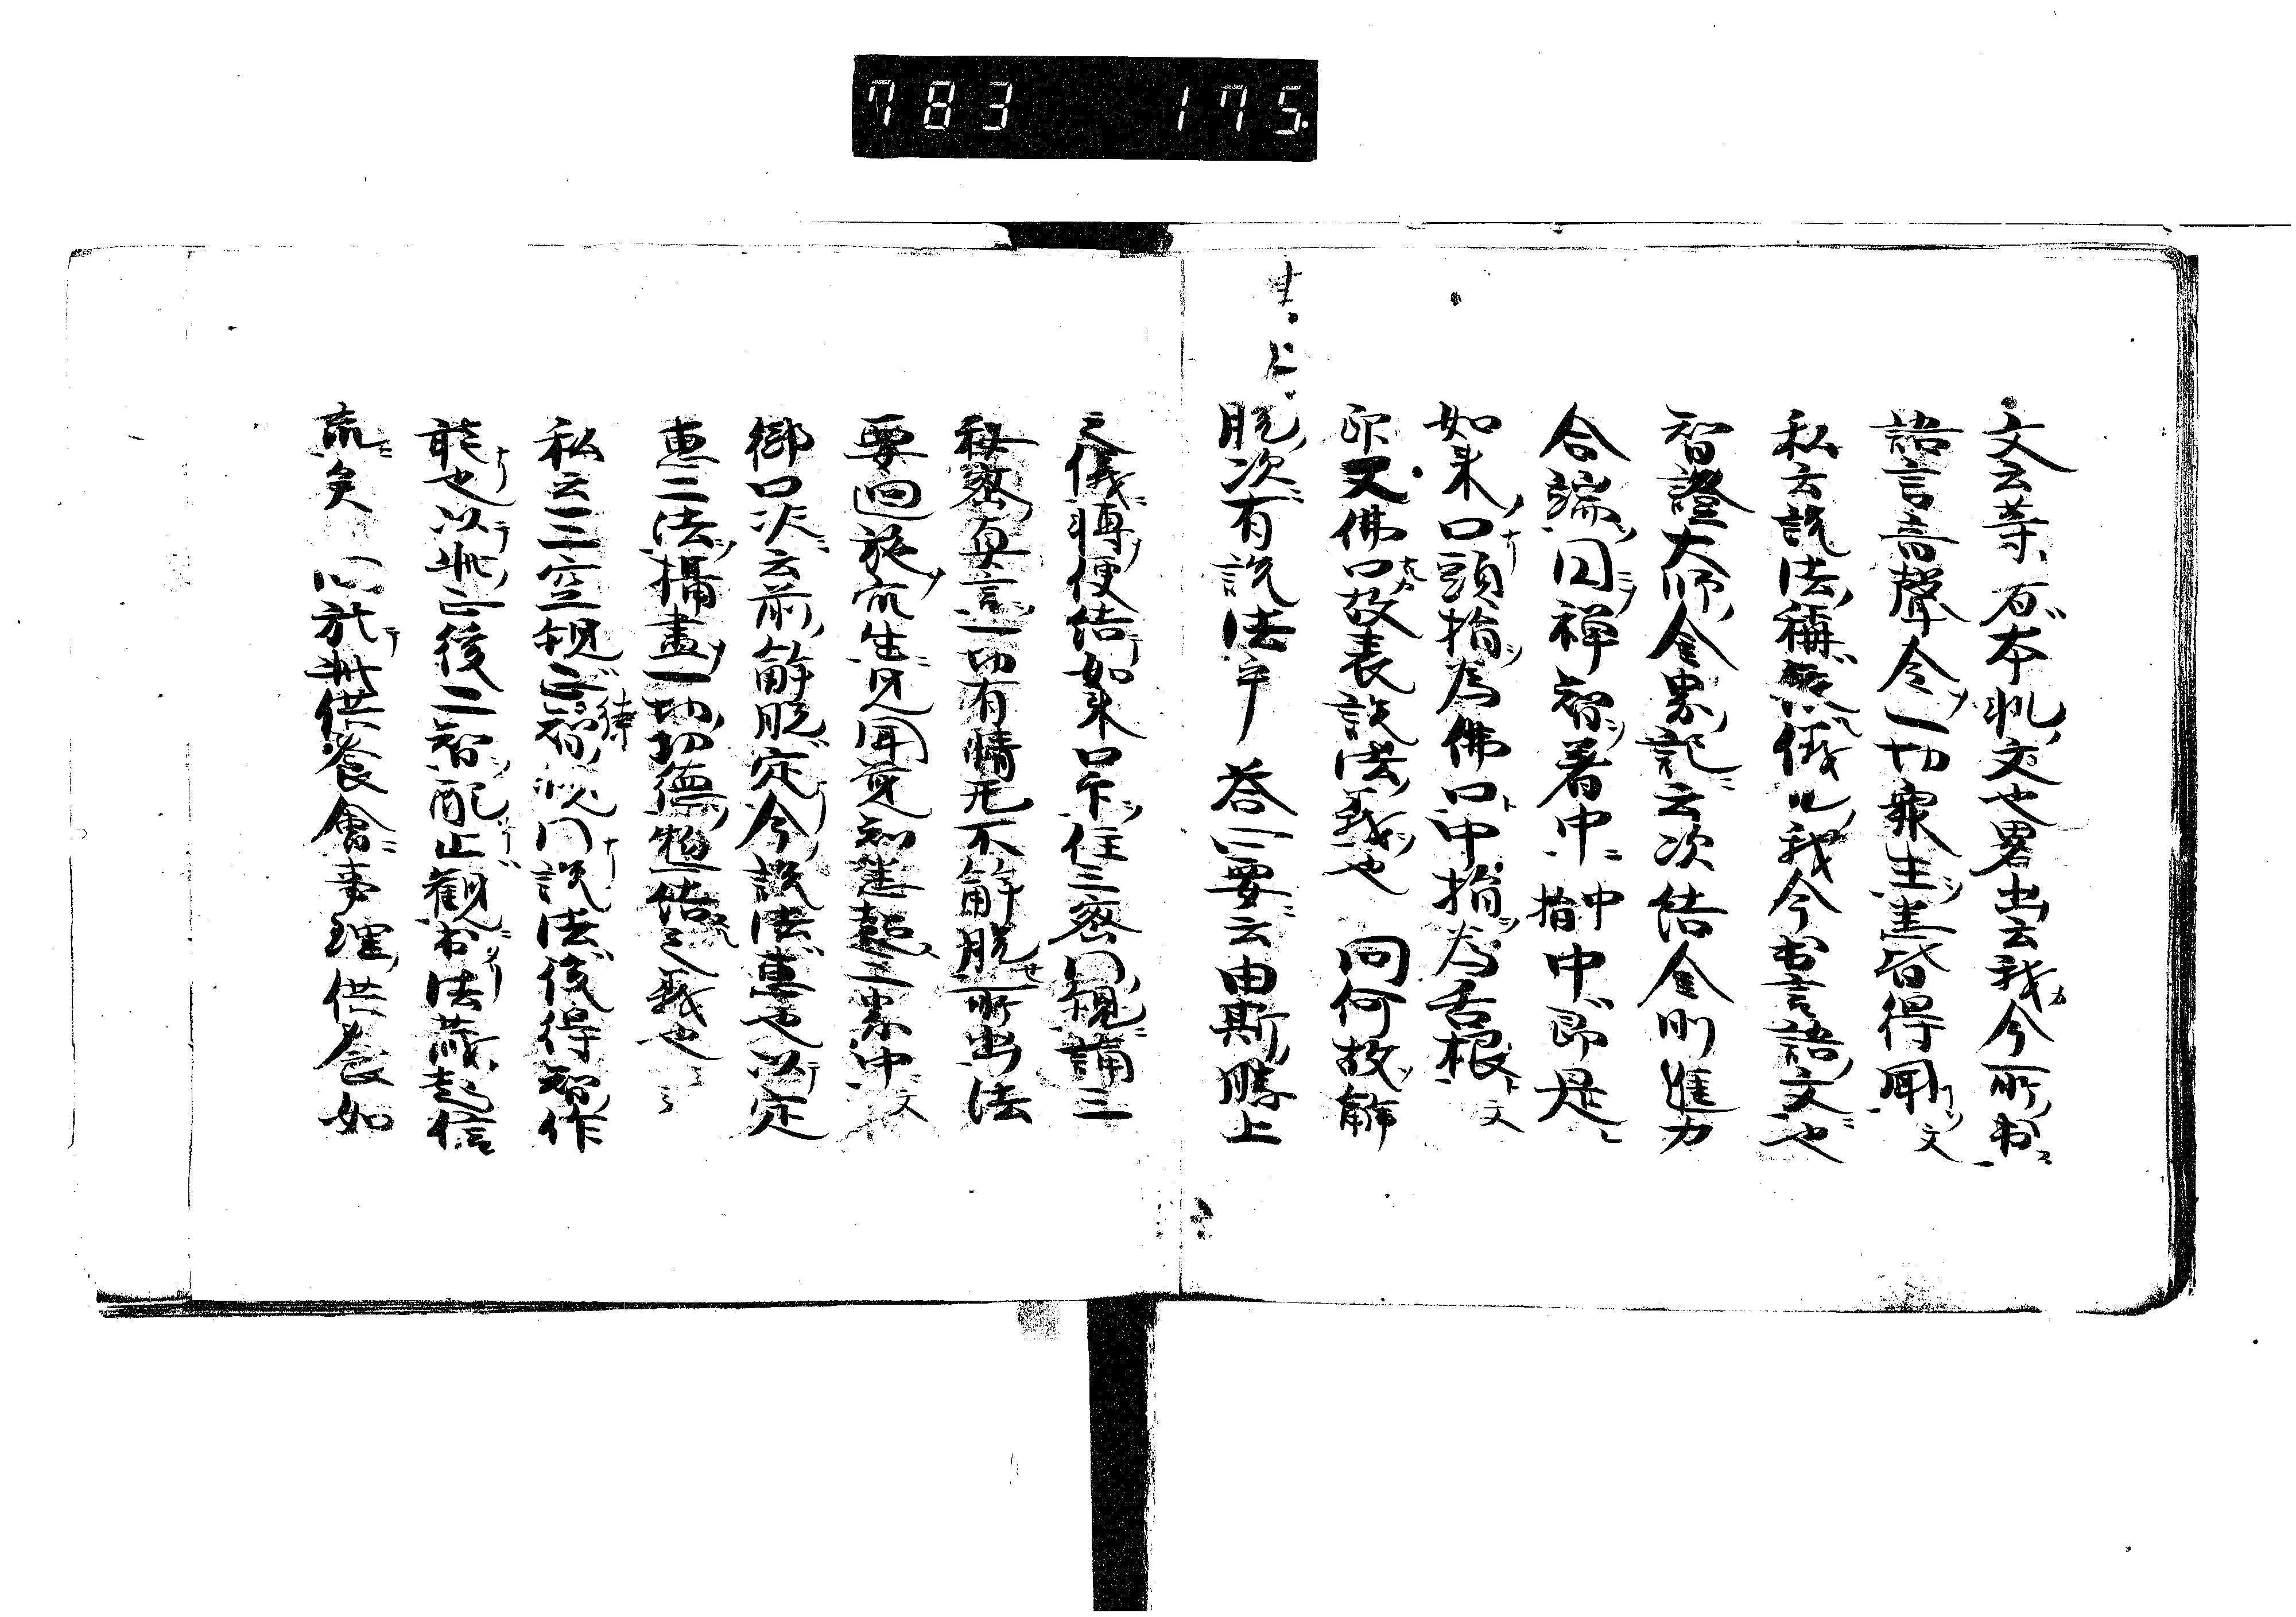 783 175.
文云等不本軌文也略出云我今所出
語言音聲令一切衆生悉皆得聞文
私云說法稱無儀軌我今出言語文也
智證大師金界記云次結金剛進力
合端囙禪智着中中指中中節是
如來口頭指爲佛口中指爲舌根文
所又佛口故表說法義也 問何故解
脫次有說法 答一要云由斯勝上
之儀轉便結如來口印住三密門觀誦三
秘密真言一切有情无不解脫所出法
要迴施衆生見聞覺知建起三業中文
御口决云前解脫定今說法惠也以定
惠二法攝盡一切功德物結之義也
私云三空觀正智說門說法後得智作
能也以此正後二智配止觀出法藏起信
疏矣 問於此供養會事理供養如